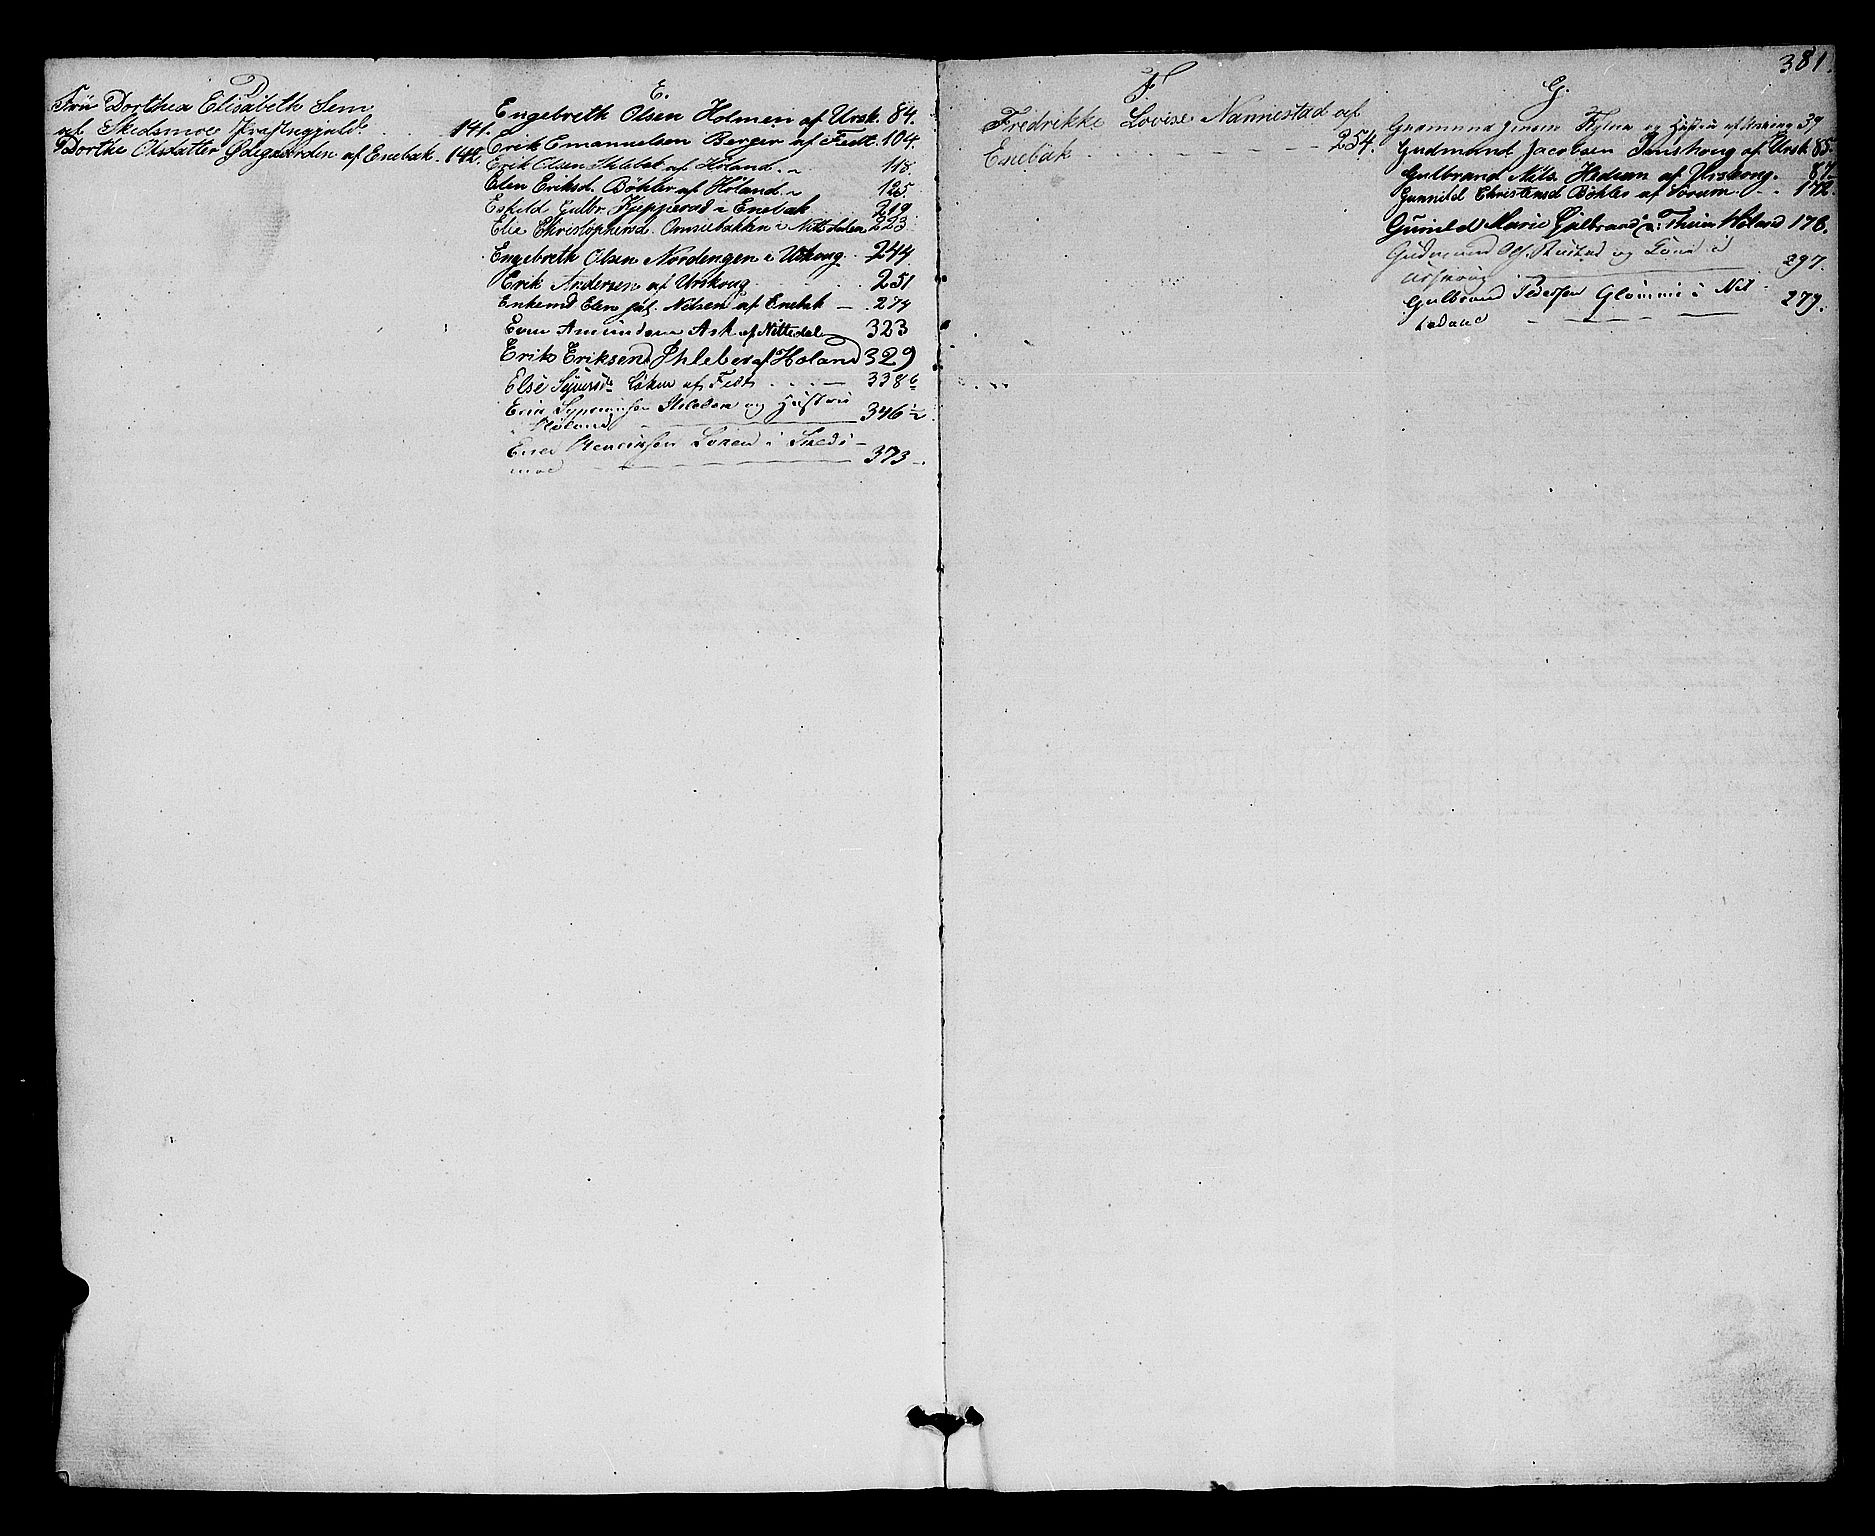 381.
D
Frü Dorthea Elisabeth Sem
af Skedsmoe Præstegjeld. 141.
Dorthe Olsdatter Ødegaarden af Enebak. 142.
E.
Engebreth Olsen Holmen af Ursk. 84.
Erik Emanuelsen Berger af Fedt. 104.
Erik Olsen Ihlebek af Höland. 118.
Elen Eriksd. Böhler af Höland. 125
Eskild Gulbr. Kjepperöd i Enebak 219
Elie Christophersd. i Nittedalen 223
Engebreth Olsen Nordengen i Urskoug. 244
Erik Andersen af Urskoug 251
Enkemd Elen Nilsen af Enebak 274
Even Amundsen Ask af Nittedal 323
Erik Eriksen Ihleber af Höland 329
Else Syversd. Löken af Fedt 338 b
og Hustrü
i Höland 346 ½
Löken i Skeds-
moe 373
F
Fredrikke Lovise Nannestad af
Enebak 254.
G.
og Hüstrü af Urskoug 39
Gudmund Jacobsen af Ursk. 85.
Gulbrand Nils. af Urskoug. 87
Gunnild Christensd Böhler af Sörum 172.
Gunild Marie Gulbrand Höland 178.
Gudmund Ols. og Kone i
Urskoug 297.
Gulbrand Pedersen Glomme i Nit-
tedalen 279.